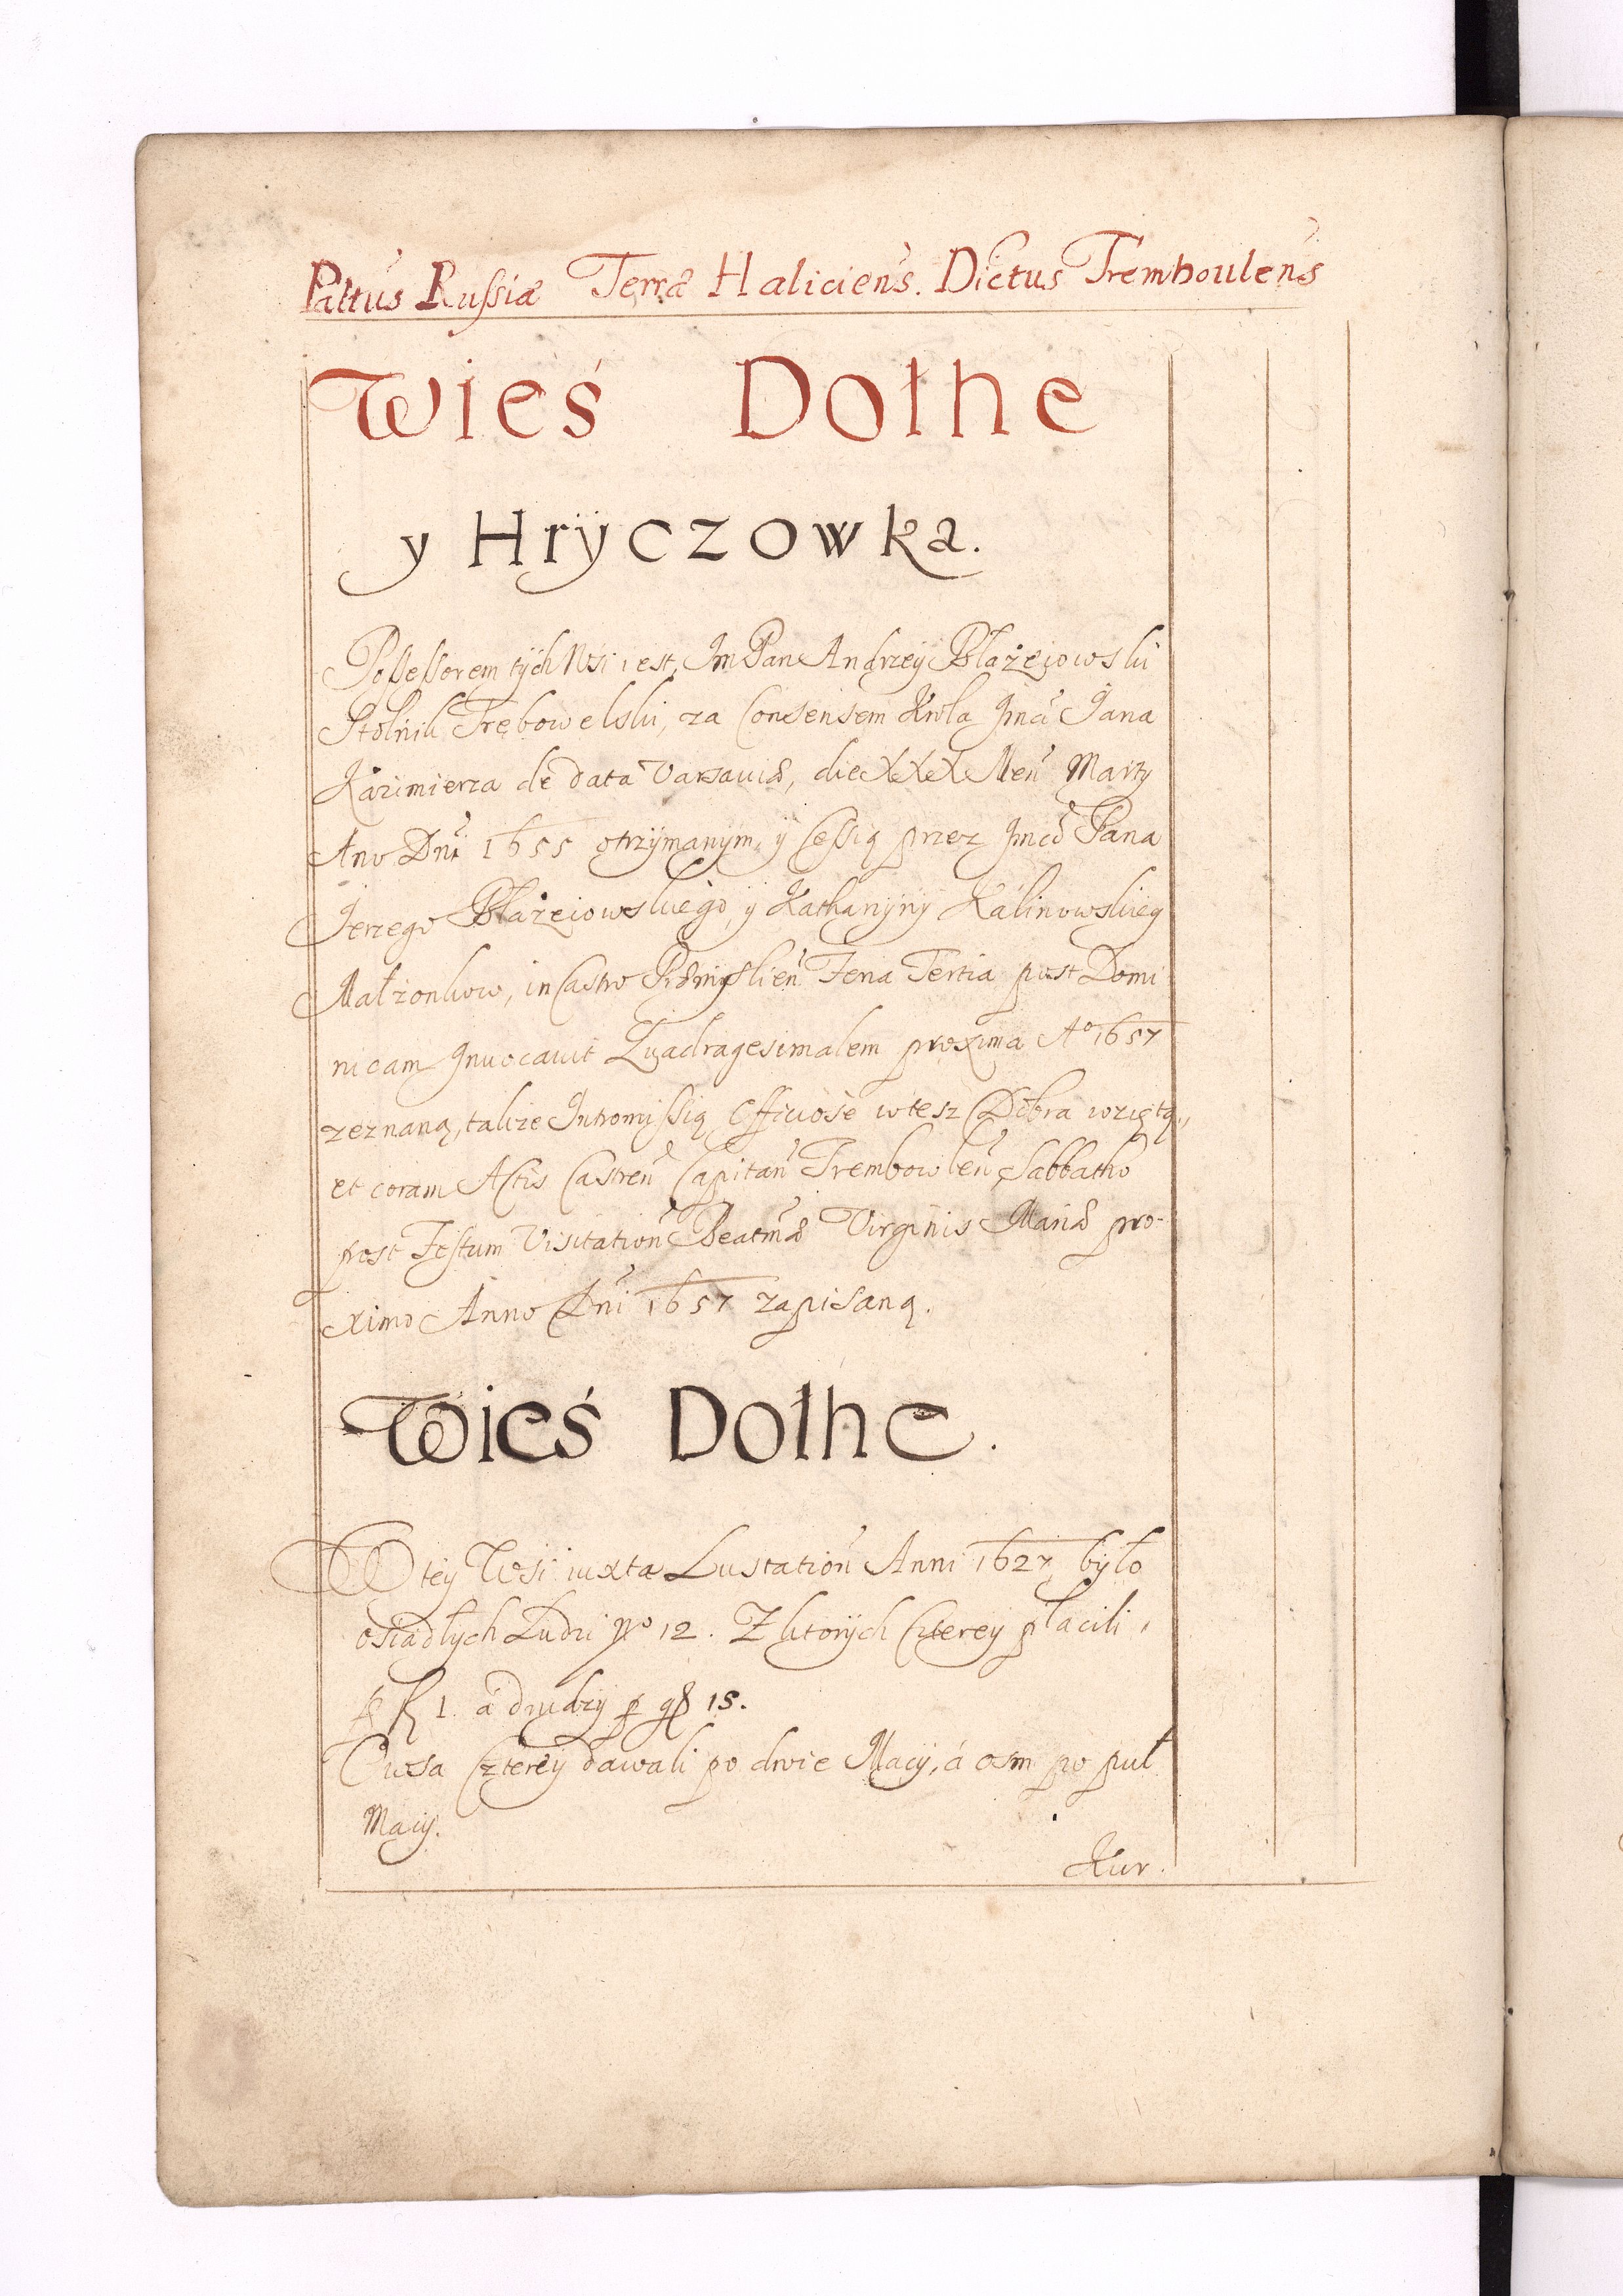 Paltus Russiæ Terræ Haliciens. Dictus Trembouleńs
Wieś Dołhe
y Hryczowka.
Possessorem tÿch Wsi iest, Im Pan Andrzeÿ Błażeiowski
Stolnik Trębowelski, za Consensem Krola Jmći Jana
Kazimierza de data Varsauiæ, die XXX Meń Marty
Ano Dni 1655 otrzÿmanÿm, ÿ Cessią przez Jmci Pana
Jerzego Błażeiowskiego, ÿ Katharzÿnÿ Kalinowskieÿ
Małżonkow, in Castro Præmislień Feria Tertia post Domi
nicam Inuocauit Quadragesimalem proxima Ao 1657
zeznaną, takze Intromissią Officiose w tesz Dobra wziętą,
et coram Actis Castreń Capitań Trembowleń Sabbatho
post Festum Visitationi Beatmæ Virginis Mariæ pro-
ximo Anno Dni 1657 zapisaną.
Wieś Dołhe.
W teÿ Wsi iuxta Lustationi Anni 1627, bÿło
osiadłÿch Ludzi No 12. Z ktorÿch Czterey płacili,
p fl 1. á drudzÿ p gr 15.
Owsa Czterey dawali po dwie Macÿ, á osm po puł
Macÿ.
Kur.